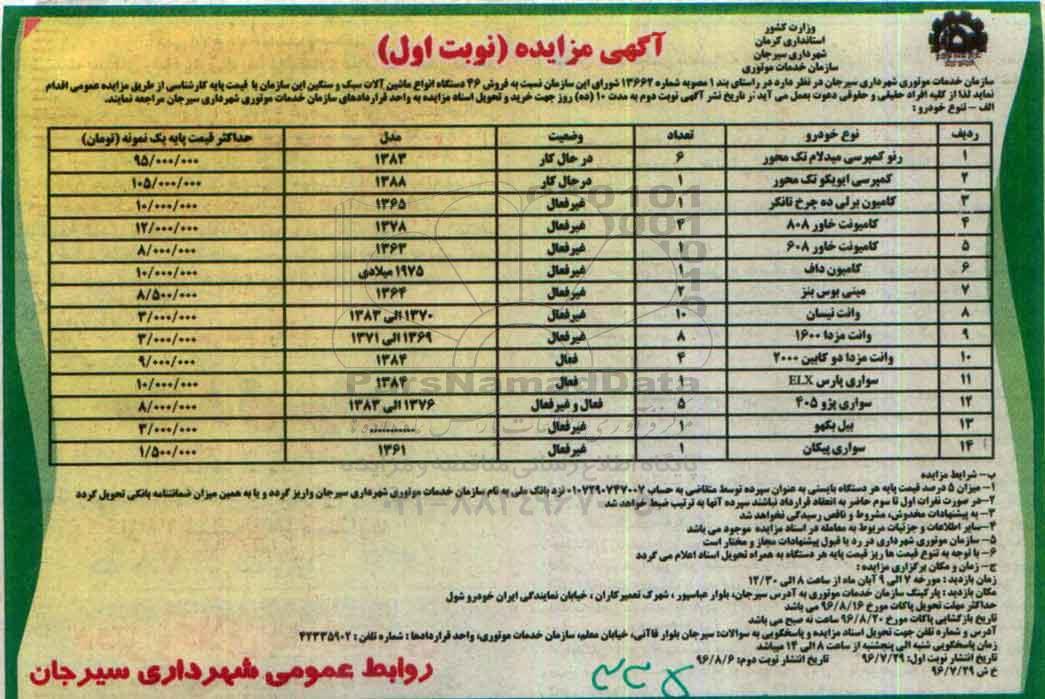 وزارت کشور
استانداری کرمان
شهرداری سیرجان
سازمان خدمات موتوری
آگهی مزایده (نوبت اول)
سازمان خدمات موتوری شهرداری سیرجان در نظر دارد در راستای بند ۱ مصوبه شماره ۱۳۶۶۲ شورای این سازمان نسبت به فروش ۴۶ دستگاه انواع ماشین آلات سبک و سنگین این سازمان با قیمت پایه کارشناسی از طریق مزایده عمومی اقدام
نماید لذا از کلیه افراد حقیقی و حقوقی دعوت بعمل می آید از تاریخ نشر آگهی نوبت دوم به مدت ۱۰ (ده) روز جهت خرید و تحویل اسناد مزایده به واحد قراردادهای سازمان خدمات موتوری شهرداری سیرجان مراجعه نمایند.
الف - تنوع خودرو :
ردیف نوع خودرو تعداد وضعیت مدل حداکثر قیمت پایه یک نمونه (تومان)
۱ رنو کمپرسی میدلام تک محور ۶ در حال کار ۱۳۸۳ ۹۵/۰۰۰/۰۰۰
۲ کمپرسی ایویکو تک محور ۱ در حال کار ۱۳۸۸ ۱۰۵/۰۰۰/۰۰۰
۳ کامیون برلی ده چرخ تانکر ۱ غیرفعال ۱۳۶۵ ۱۰/۰۰۰/۰۰۰
۴ کامیونت خاور ۸۰۸ ۴ غیرفعال ۱۳۷۸ ۱۲/۰۰۰/۰۰۰
۵ کامیونت خاور ۶۰۸ ۱ غیرفعال ۱۳۶۳ ۸/۰۰۰/۰۰۰
۶ کامیون داف ۱ غیرفعال ۱۹۷۵ میلادی ۱۰/۰۰۰/۰۰۰
۷ مینی بوس بنز ۲ غیرفعال ۱۳۶۴ ۸/۵۰۰/۰۰۰
۸ وانت نیسان ۱۰ غیرفعال ۱۳۷۰ الی ۱۳۸۳ ۳/۰۰۰/۰۰۰
۹ وانت مزدا ۱۶۰۰ ۸ غیرفعال ۱۳۶۹ الی ۱۳۷۱ ۳/۰۰۰/۰۰۰
۱۰ وانت مزدا دو کابین ۲۰۰۰ ۴ فعال ۱۳۸۴ ۹/۰۰۰/۰۰۰
۱۱ سواری پارس ELX ۱ فعال ۱۳۸۴ ۱۰/۰۰۰/۰۰۰
۱۲ سواری پژو ۴۰۵ ۵ فعال و غیرفعال ۱۳۷۶ الی ۱۳۸۳ ۸/۰۰۰/۰۰۰
۱۳ بیل بکهو ۱ غیرفعال .......... ۳/۰۰۰/۰۰۰
۱۴ سواری پیکان ۱ غیرفعال ۱۳۶۱ ۱/۵۰۰/۰۰۰
ParsNamadData
پایگاه اطلاع رسانی مناقصه و مزایده
ب- شرایط مزایده
۱- میزان ۵ درصد قیمت پایه هر دستگاه بایستی به عنوان سپرده توسط متقاضی به حساب ۰۱۰۷۲۹۰۷۴۷۰۰۷ نزد بانک ملی به نام سازمان خدمات موتوری شهرداری سیرجان واریز گردد و یا به همین میزان ضمانتنامه بانکی تحویل گردد
۲- در صورت نفرات اول تا سوم حاضر به انعقاد قرارداد نباشند سپرده آنها به ترتیب ضبط خواهد شد
۳- به پیشنهادات مخدوش، مشروط و ناقص رسیدگی نخواهد شد
۴- سایر اطلاعات و جزئیات مربوط به معامله در اسناد مزایده موجود می باشد
۵- سازمان موتوری شهرداری در رد یا قبول پیشنهادات مجاز و مختار است
۶- با توجه به تنوع قیمت ها ریز قیمت پایه هر دستگاه به همراه تحویل اسناد اعلام می گردد
ج- زمان و مکان برگزاری مزایده :
زمان بازدید : مورخه ۷ الی ۹ آبان ماه از ساعت ۸ الی ۱۲/۳۰
مکان بازدید : پارکینگ سازمان خدمات موتوری به آدرس سیرجان، بلوار عباسپور ، شهرک تعمیرکاران ، خیابان نمایندگی ایران خودرو شول
حداکثر مهلت تحویل پاکات مورخ ۹۶/۸/۱۶ می باشد
تاریخ بازگشایی پاکات مورخ ۹۶/۸/۲۰ ساعت نه صبح می باشد
آدرس و شماره تلفن جهت تحویل اسناد مزایده و پاسخگویی به سوالات: سیرجان بلوار قاآنی، خیابان معلم، سازمان خدمات موتوری، واحد قراردادها : شماره تلفن : ۴۲۳۳۵۹۰۲
زمان پاسخگویی شنبه الی پنجشنبه از ساعت ۸ الی ۱۴ میباشد
تاریخ انتشار نوبت اول: ۹۶/۷/۲۹ تاریخ انتشار نوبت دوم: ۹۶/۸/۶
خ ش ۹۶/۷/۲۹
روابط عمومی شهرداری سیرجان